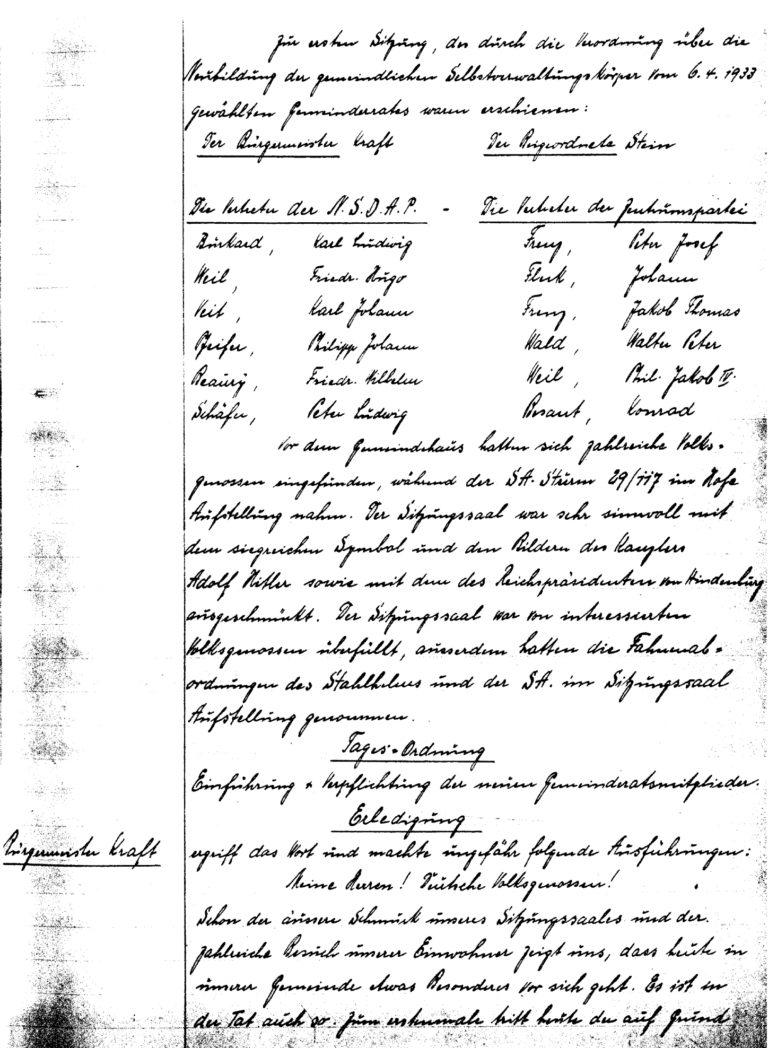 Zur ersten Sitzung, des durch die Verordnung über die
Neubildung der gemeindlichen Selbstverwaltungskörper vom 6.4.1933
gewählten Gemeinderates waren erschienen:
Der Bürgermeister Kraft Der Beigeordnete Stein
Die Vertreter der N.S.D.A.P. - Die Vertreter der Zentrumspartei
Burkard, Karl Ludwig Frenz, Peter Josef
Weil, Friedr. Hugo Fluk, Johann
Veit, Karl Johann Frenz, Jakob Thomas
Pfeifer, Philipp Johann Wald, Walter Peter
Beaury, Friedr. Wilhelm Weil, Phil. Jakob IV.
Schäfer, Peter Ludwig Besant, Konrad
Vor dem Gemeindehaus hatten sich zahlreiche Volks-
genossen eingefunden, während der SA-Sturm 29/117 im Hofe
Aufstellung nahm. Der Sitzungssaal war sehr sinnvoll mit
dem siegreichen Symbol und den Bildern des Kanzlers
Adolf Hitler sowie mit dem des Reichspräsidenten von Hindenburg
ausgeschmückt. Der Sitzungssaal war von interessierten
Volksgenossen überfüllt, ausserdem hatten die Fahnenab-
ordnungen des Stahlhelms und der SA. im Sitzungssaal
Aufstellung genommen.
Tages-Ordnung
Einführung + Verpflichtung der neuen Gemeinderatsmitglieder.
Erledigung
Bürgermeister Kraft ergriff das Wort und machte ungefähr folgende Ausführungen:
Meine Herren! Deutsche Volksgenossen!
Schon der äussere Schmuck unseres Sitzungssaales und der
zahlreiche Besuch unserer Einwohner zeigt uns, dass heute in
unserer Gemeinde etwas Besonderes vor sich geht. Es ist in
der Tat auch so. Zum erstenmale tritt heute der auf Grund